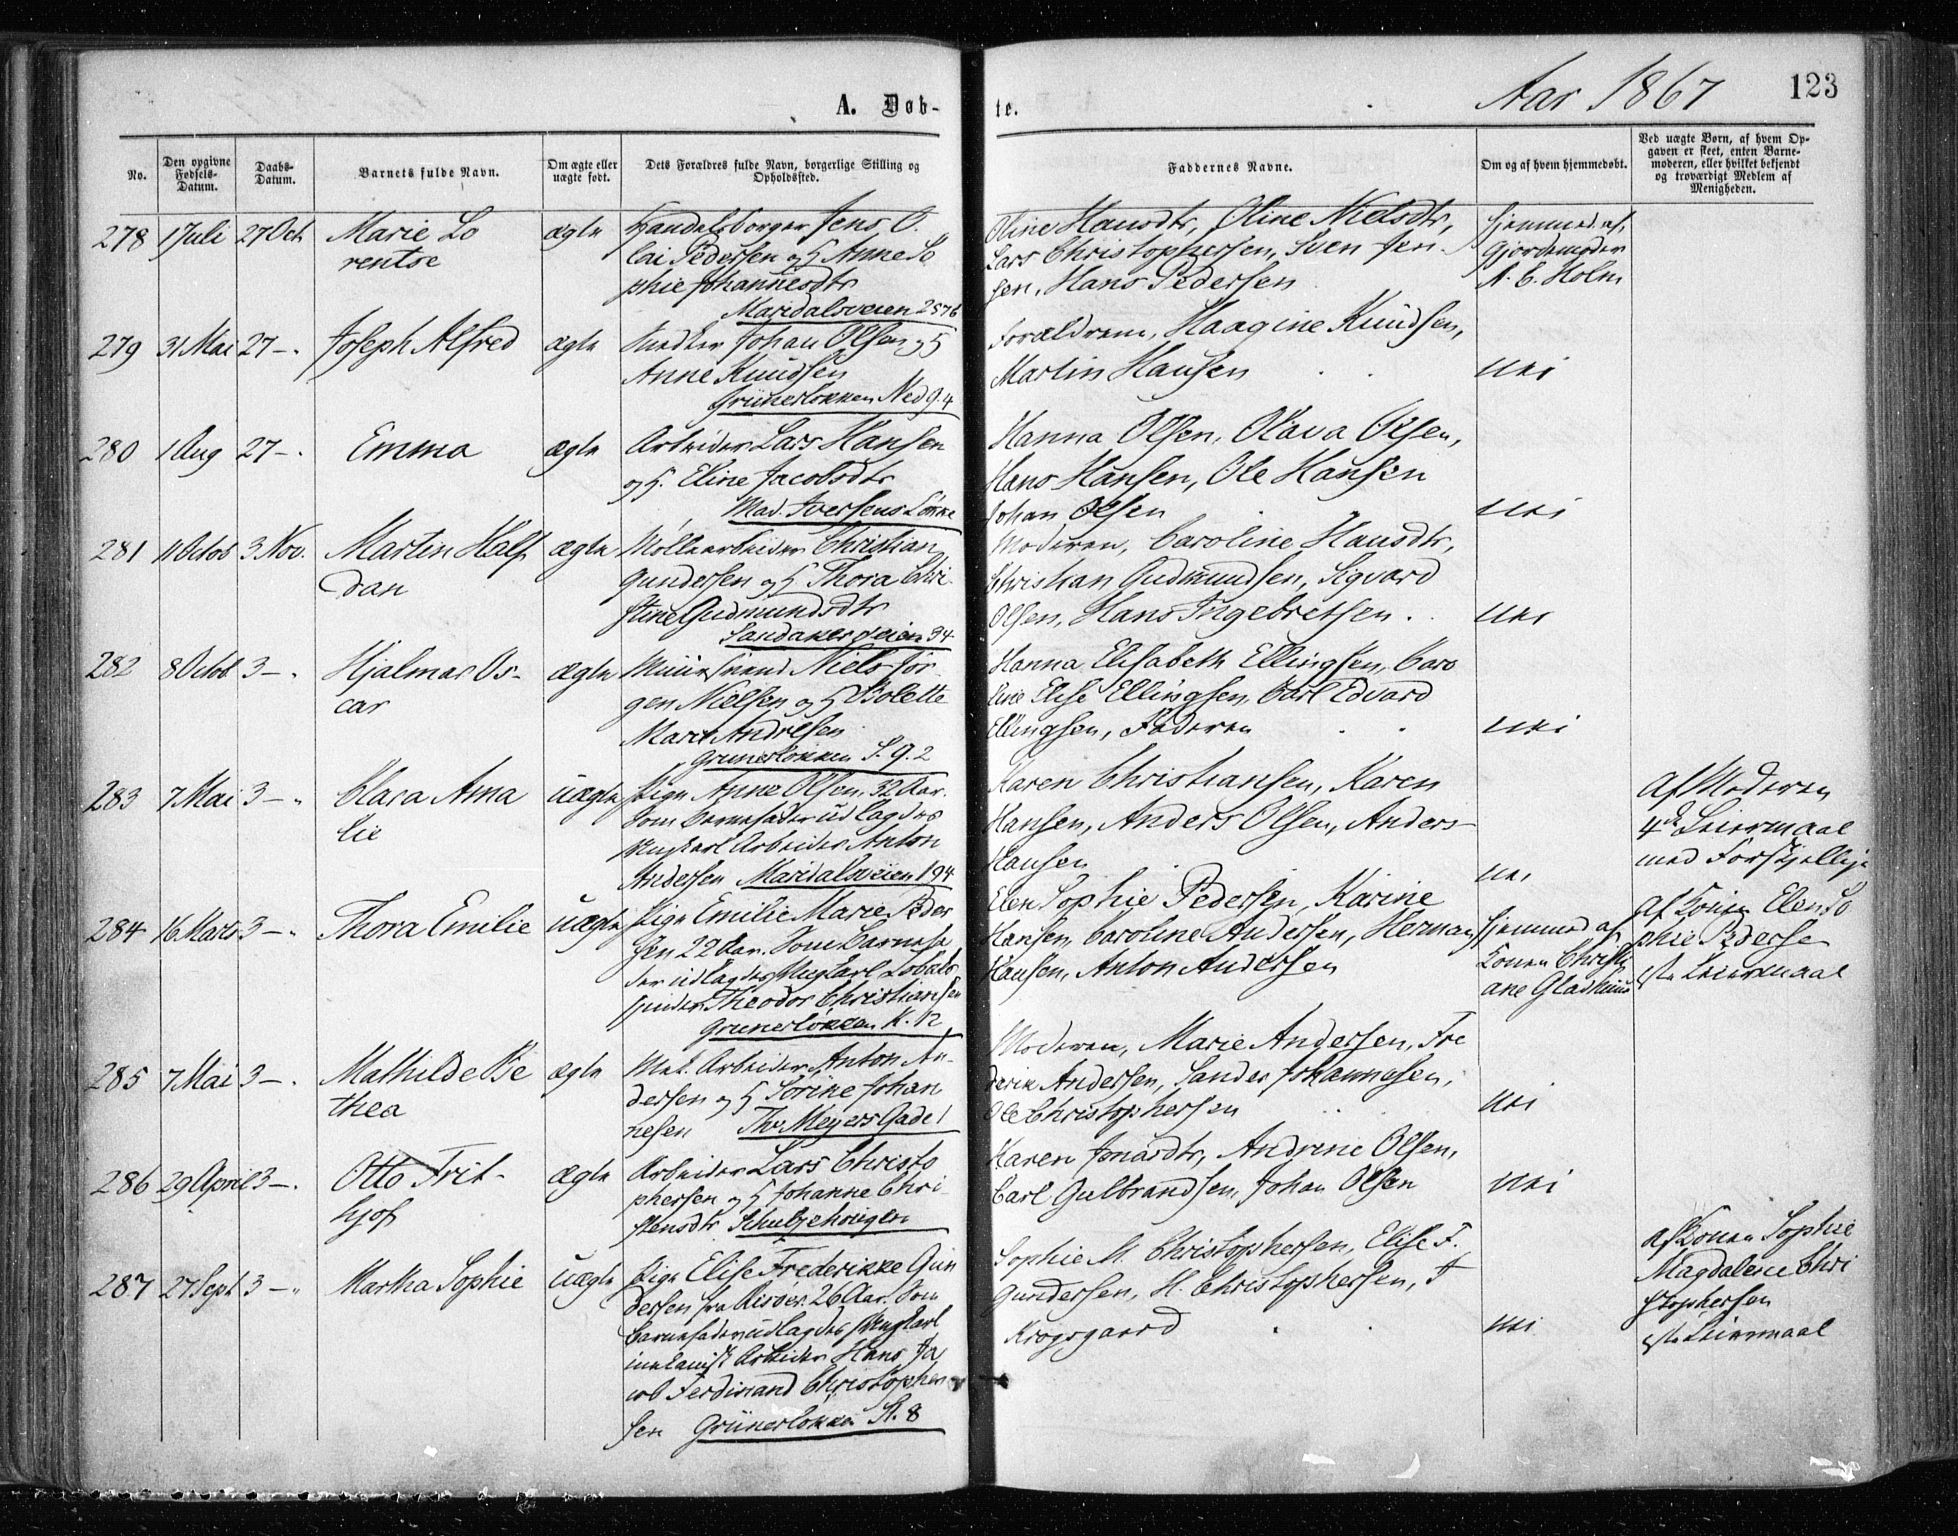 A. Døb-
te.
Aar 1867
123
No.
Den opgivne Fødsels-Datum.
Daabs-Datum.
Barnets fulde Navn.
Om ægte eller uægte født.
Dets Forældres fulde Navn, borgerlige Stilling og Opholdssted.
Faddernes Navne.
Om og af hvem hjemmedøbt.
Ved uægte Børn, af hvem Op-
gaven er skeet, enten Barne-
moderen, eller hvilket bekjendt
og troværdigt Medlem af
Menigheden.
278 1 Juli 27 Oct Marie Lo
rentse
ægte
Handelsborger Jens O.
lai Pedersen og H Anne So
phie Johannesdtr
Maridalsveien 257b
Oline Hansdtr, Oline Nielsdtr,
Lars Christophersen, Sven Jen-
sen, Hans Pedersen
Hjemmed. af
Gjordemoder
N. C. Holm
279 31 Mai 27 -. Joseph Alfred
ægte
Johan Olsen og H
Anne Knudsen
Grünerløkken Ned 9.4
Forældrene, Haagine Knudsen,
Martin Hansen
Nei
280 1 Aug 27 -. Emma
ægte
Arbeider Lars Hansen
og H. Eline Jacobsdtr
Mad. Iversens Løkke
Hanna Olsen, Olava Olsen,
Hans Hansen, Ole Hansen
Johan Olsen
Nei
281 11 Octob 3 Nov. Martin Half
dan
ægte
Møllearbeider Christian
Gundersen og H Thora Chri
stine Gudmundsdtr
Sandakerveien 34
Moderen, Caroline Hansdtr,
Christian Gudmundsen, Sigvard
Olsen, Hans Ingebretsen.
Nei
282 8 Octb 3 -. Hjalmar Os-
car
ægte
Muursvend Niels Jør
gen Nielsen og H Bolette
Marie Andresen
Grünerløkken S. 9. 2
Hanna Elisabeth Ellingsen, Caro
line Elise Ellingsen, Carl Edvard
Ellingsen, Faderen
Nei
283 7 Mai 3 - „ Clara Ama
lie
uægte
Pige Anne Olsen, 32 Aar.
Som Barnefader udlagdes
Ungkarl Arbeider Anton
Andersen Maridalsveien 194
Karen Christiansen, Karen
Hansen, Anders Olsen, Anders
Hansen
Nei
Af Moderen
4de Leiermaal
med Forskjellige
284 16 Marts 3 - „ Thora Emilie
uægte
Pige Emilie Marie Peder
sen 22 Aar. Som Barnefa
der udlagdes Ungkarl Tobaks
spinder Theodor Christiansen
Grünerløkken K. 12
Elen Sophie Pedersen, Karine
Hansen, Caroline Andersen, Herman
Hansen, Anton Andersen
Hjemmed af
Konen Christi
ane Gladhuus
af Konen Elen So
phie Pederse
1ste Leiermaal
285 7 Mai 3 -. Mathilde Be
thea
ægte
Mek. Arbeider Anton An-
dersen og H Sørine Johan
nesen Thv Meyers Gade 1
Moderen, Marie Andersen, Fre
derik Andersen, Sander Johannesen,
Ole Christophersen
Nei
286 29 April 3 -. Otto Frit-
hjof
ægte
Arbeider Lars Christo
phersen og H Johanne Chri
stensdtr Schultzehougen
Karen Jonardtr, Andrine Olsen,
Carl Gulbrandsen, Johan Olsen
Nei
287 27 Sept 3 - „ Martha Sophie
uægte
Pige Elise Frederikke Gun
dersen fra Risøer. 26 Aar. Som
Barnefader udlagdes Ungkarl
mekanisk Arbeider Hans Ja
cob Ferdinand Christopher
sen Grünerløkken St. 8
Sophie M. Christophersen, Elise F.
Gundersen, H. Christophersen, F
Krogsgaard
Nei
af Konen Sophie
Magdalene Chri
stophersen
1ste Leiermaal